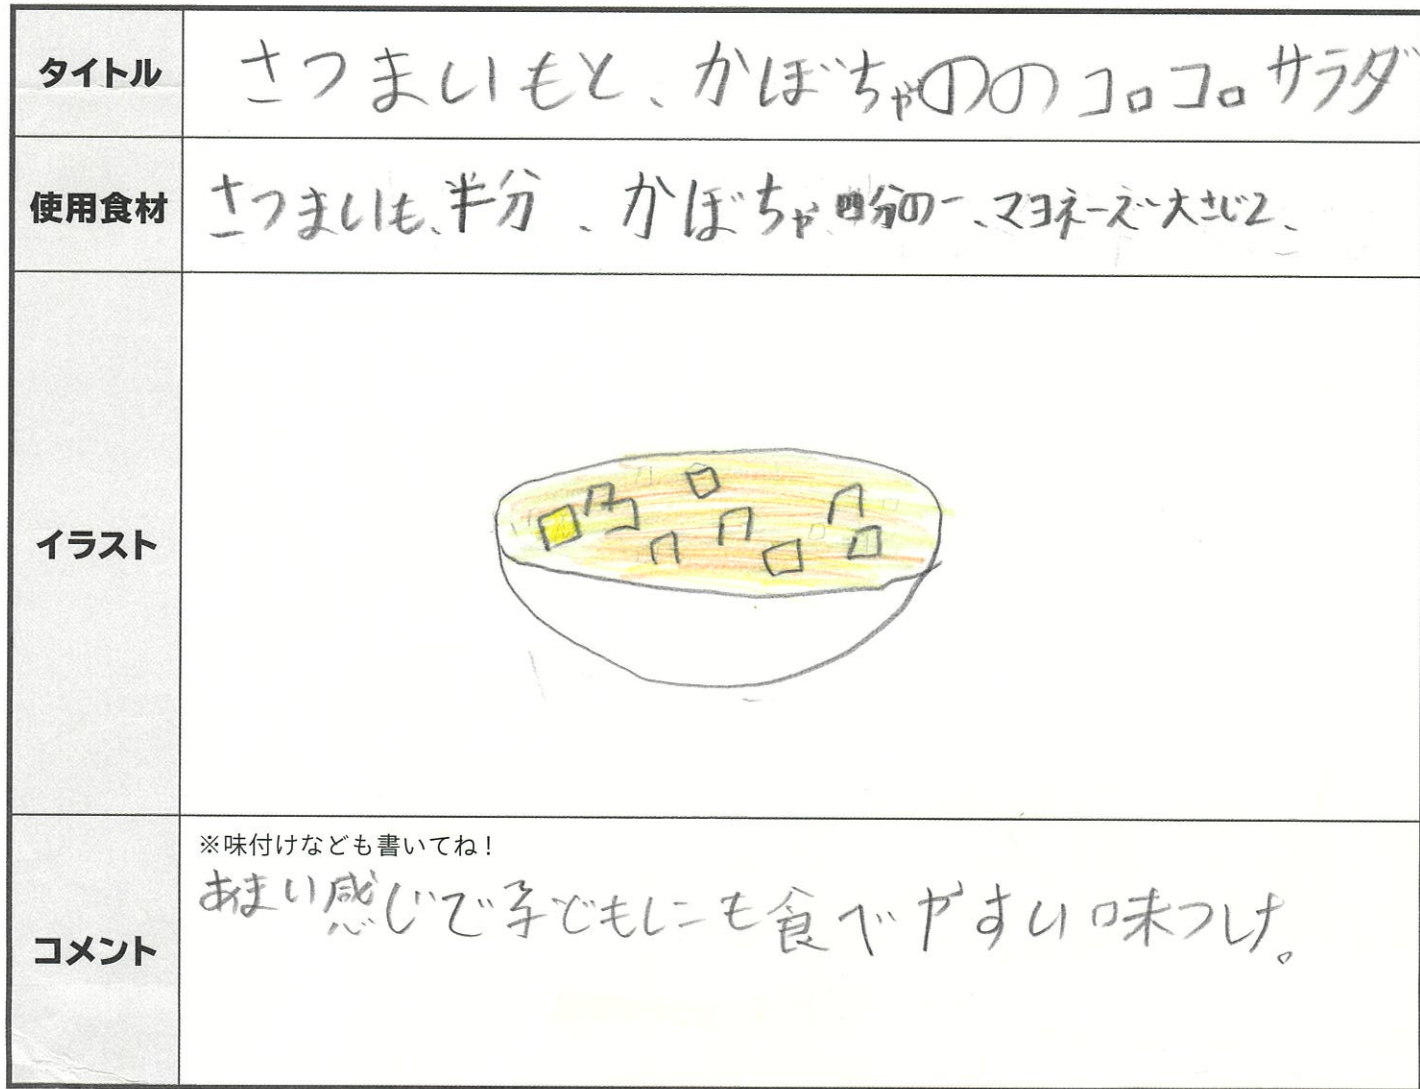 タイトル
さつまいもと、かぼちゃののコロコロサラダ
使用食材
さつまいも、半分、かぼちゃ四分の一、マヨネーズ大さじ2、
イラスト
コメント
※味付けなども書いてね！
あまい感じで子どもにも食べやすい味つけ。